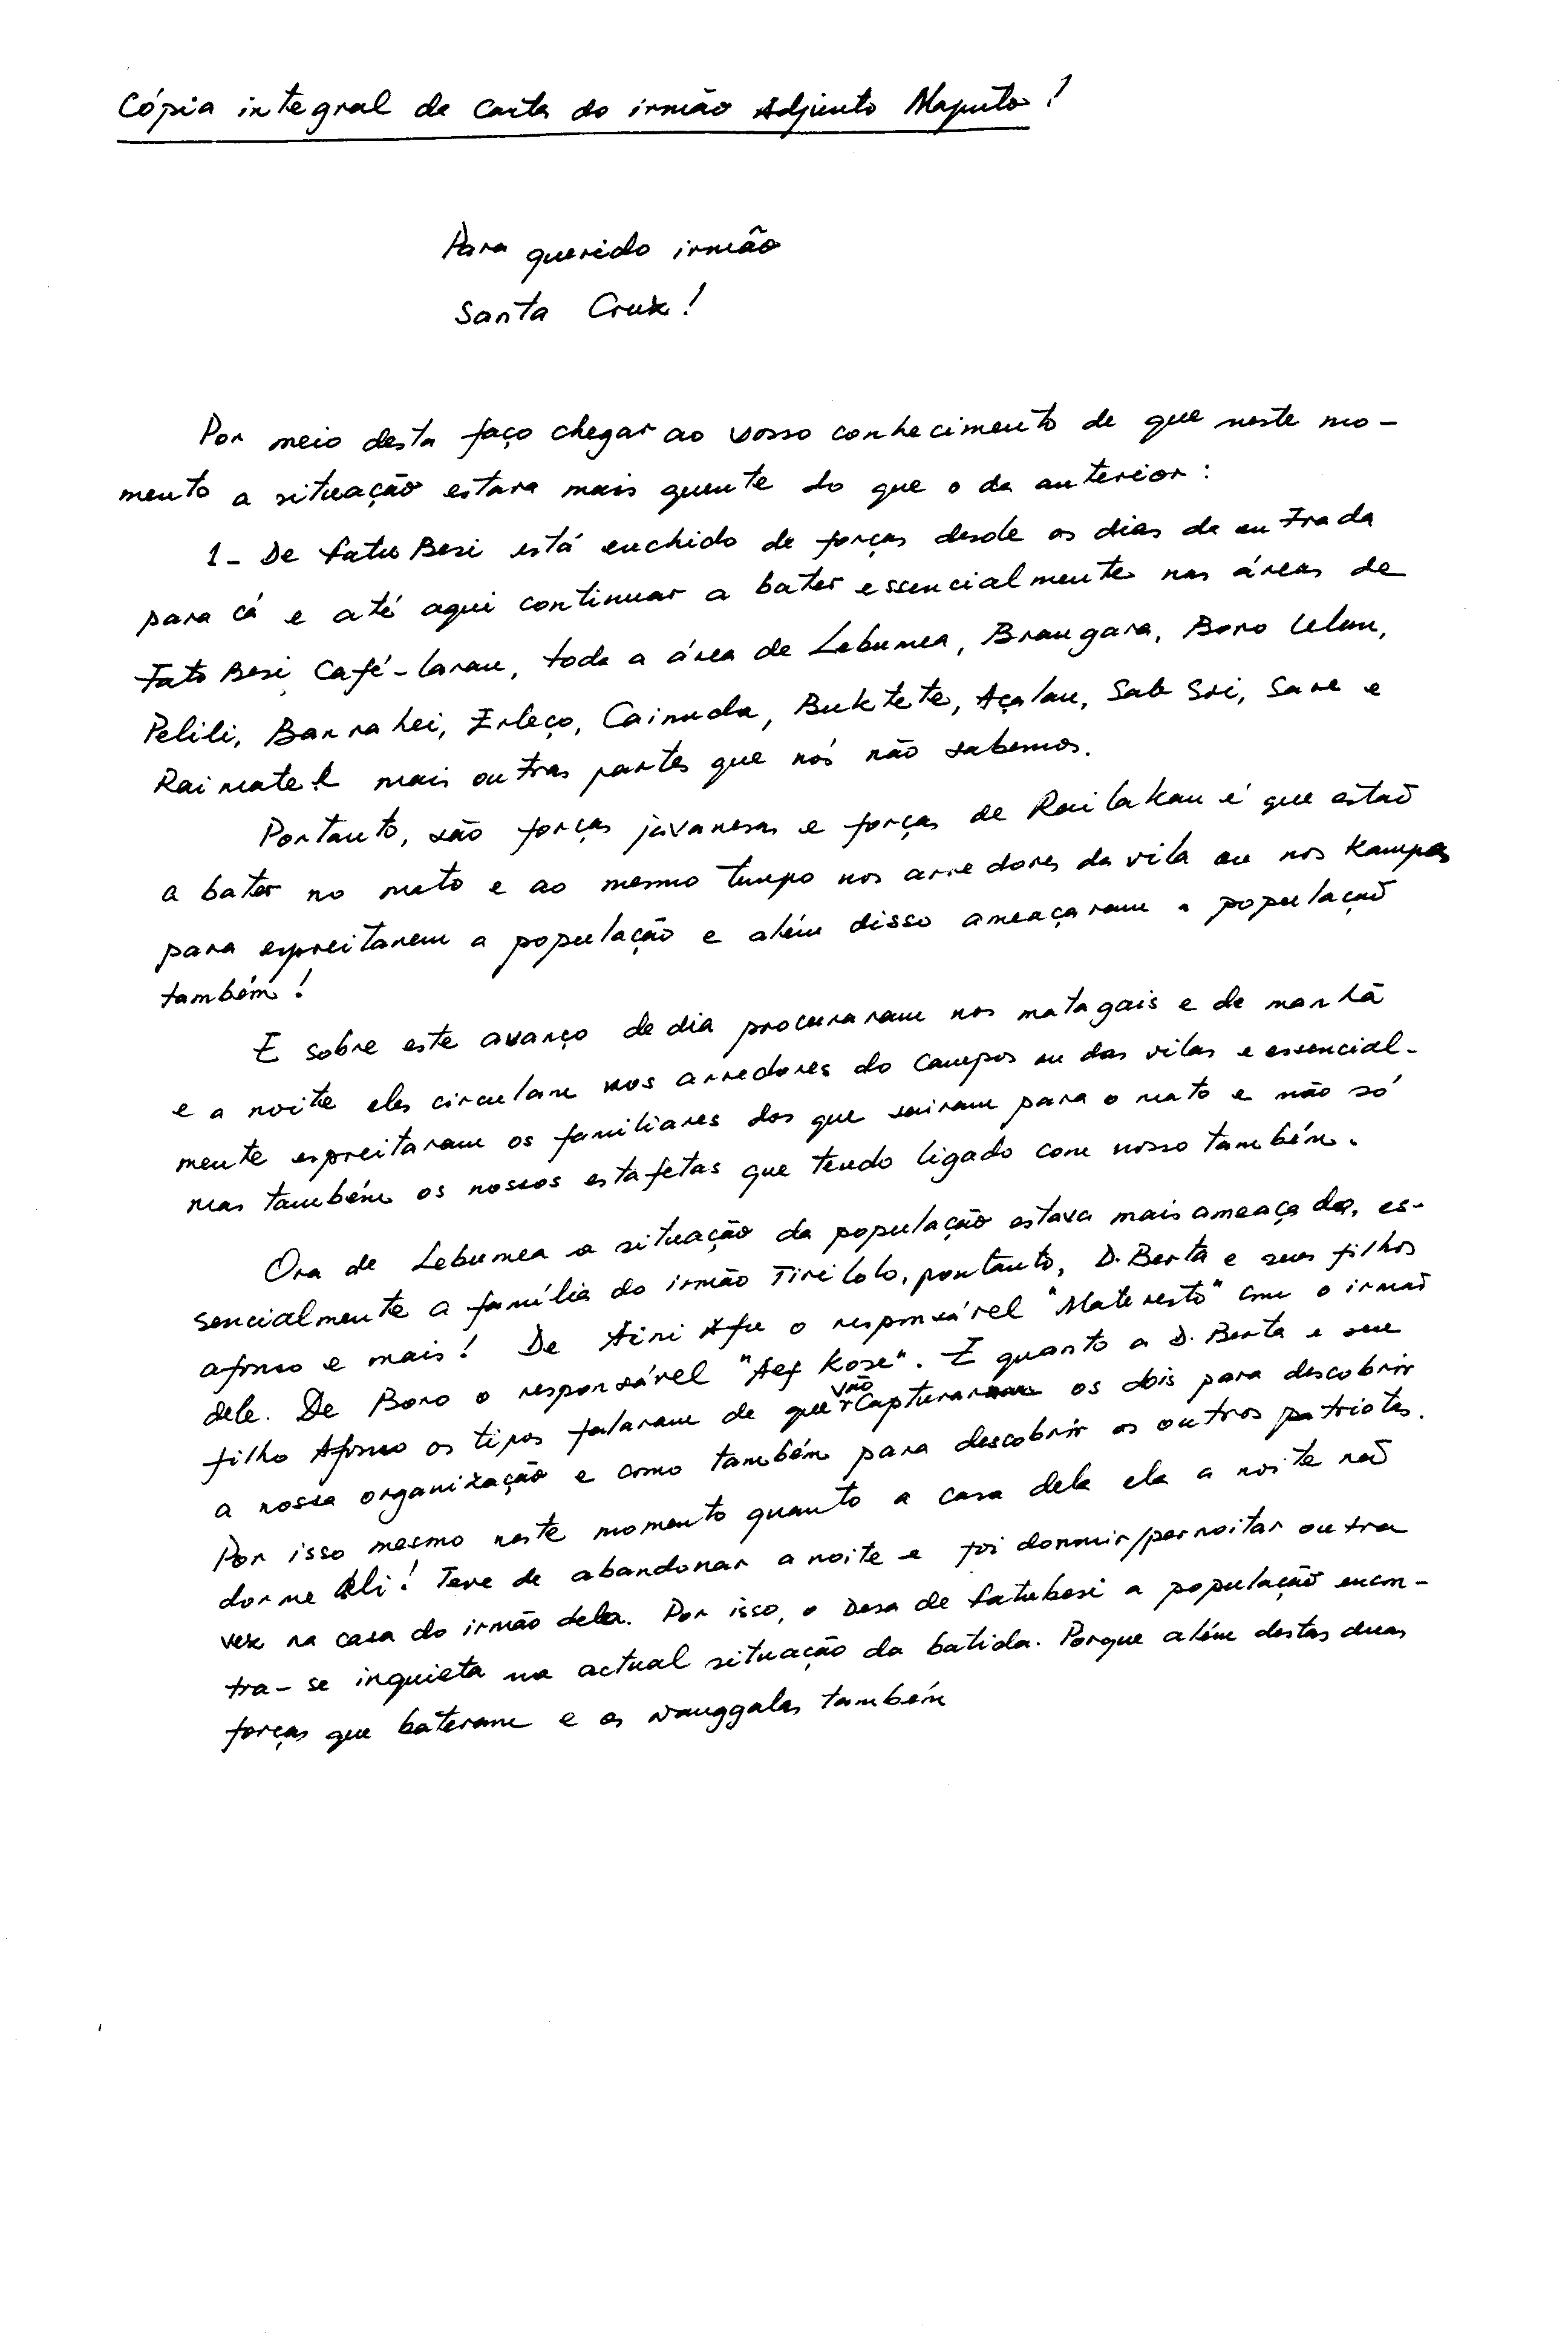 Cópia integral da Carta do irmão Adjunto Maputo!
Para querido irmão
Santa Cruz!
Por meio desta faço chegar ao vosso conhecimento de que neste mo-
mento a situação estava mais quente do que o da anterior:
1- De Fatu Besi está enchido de forças desde os dias da entrada
para cá e até aqui continuar a bater essencialmente nas áreas de
Fatu Besi Café-laran, toda a área de Lebumea, Braugara, Boro Ulun,
Pelili, Barrahei, Erleço, Cainuda, Buktete, Açalau, Sab Sri, Sare e
Raimatel mais outras partes que nós não sabemos.
Portanto, são forças javanesas e forças de Railakan é que estão
a bater no mato e ao mesmo tempo nos arredores da vila ou nos Kampos
para espreitarem a população e além disso ameaçaram a população
também!
E sobre este avanço de dia procuraram nos matagais e de manhã
e a noite eles circulam nos arredores do campos ou das vilas e essencial-
mente espreitaram os familiares dos que sairam para o mato e não só
mas também os nossos estafetas que tendo ligado com nosso também.
Ora de Lebumea a situação da população estava mais ameaçada, es-
sencialmente a família do irmão Tirilolo, portanto, D. Berta e seus filhos
afonso e mais! De Airi Afu o responsável "Materesto" com o irmão
dele. De Boro o responsável "Aef Kose". E quanto a D. Berta e seu
filho Afonso os tipos falaram de que vão capturar os dois para descobrir
a nossa organização e como também para descobrir os outros patriotas.
Por isso mesmo neste momento quanto a casa dela ela a noite não
dorme ali! Teve de abandonar a noite e foi dormir/pernoitar outra
vez na casa do irmão dela. Por isso, o Desa de Fatubesi a população encon-
tra-se inquieta na actual situação da batida. Porque além destas duas
forças que bateram e os nanggalas também